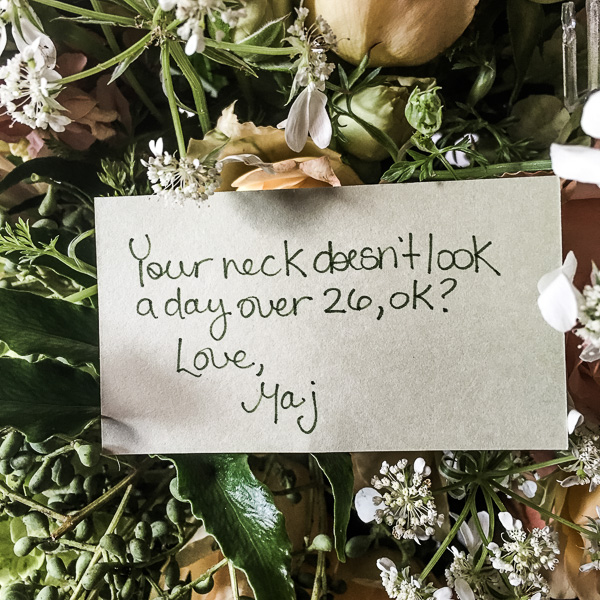 Your neck doesn't look
a day over 26, ok?
Love,
Maj